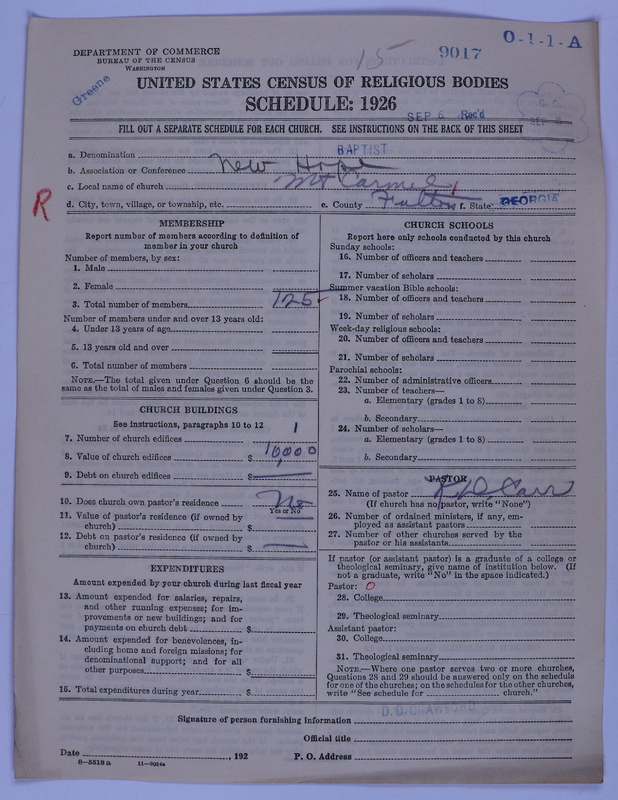 DEPARTMENT OF COMMERCE
BUREAU OF THE CENSUS
WASHINGTON
Greene
15
9017
O-1-1-A
UNITED STATES CENSUS OF RELIGIOUS BODIES
SCHEDULE: 1926
SEP 6 Rec'd
FILL OUT A SEPARATE SCHEDULE FOR EACH CHURCH. SEE INSTRUCTIONS ON THE BACK OF THIS SHEET
a. Denomination BAPTIST
b. Association or Conference New Hope
c. Local name of church Mt Carmel
d. City, town, village, or township, etc. e. County Fulton f. State GEORGIA
R
MEMBERSHIP
Report number of members according to definition of
member in your church
Number of members, by sex:
1. Male
2. Female
3. Total number of members 125
Number of members under and over 13 years old:
4. Under 13 years of age
5. 13 years old and over
6. Total number of members
NOTE.—The total given under Question 6 should be the
same as the total of males and females given under Question 3.
CHURCH BUILDINGS
See instructions, paragraphs 10 to 12
7. Number of church edifices 1
8. Value of church edifices $ 10,000
9. Debt on church edifices $
10. Does church own pastor's residence No
Yes or No
11. Value of pastor's residence (if owned by
church) $
12. Debt on pastor's residence (if owned by
church) $
EXPENDITURES
Amount expended by your church during last fiscal year
13. Amount expended for salaries, repairs,
and other running expenses; for im-
provements or new buildings; and for
payments on church debt $
14. Amount expended for benevolences, in-
cluding home and foreign missions; for
denominational support; and for all
other purposes $
15. Total expenditures during year $
CHURCH SCHOOLS
Report here only schools conducted by this church
Sunday schools:
16. Number of officers and teachers
17. Number of scholars
Summer vacation Bible schools:
18. Number of officers and teachers
19. Number of scholars
Week-day religious schools:
20. Number of officers and teachers
21. Number of scholars
Parochial schools:
22. Number of administrative officers
23. Number of teachers—
a. Elementary (grades 1 to 8)
b. Secondary
24. Number of scholars—
a. Elementary (grades 1 to 8)
b. Secondary
PASTOR
25. Name of pastor Carr
(If church has no pastor, write "None")
26. Number of ordained ministers, if any, em-
ployed as assistant pastors
27. Number of other churches served by the
pastor or his assistants
If pastor (or assistant pastor) is a graduate of a college or
theological seminary, give name of institution below. (If
not a graduate, write "No" in the space indicated.)
Pastor: O
28. College
29. Theological seminary
Assistant pastor:
30. College
31. Theological seminary
NOTE.—Where one pastor serves two or more churches,
Questions 28 and 29 should be answered only on the schedule
for one of the churches; on the schedules for the other churches,
write "See schedule for church."
D. D. CRAWFORD
Signature of person furnishing information
Official title
Date , 192 P. O. Address
8—5518a 11—9054a